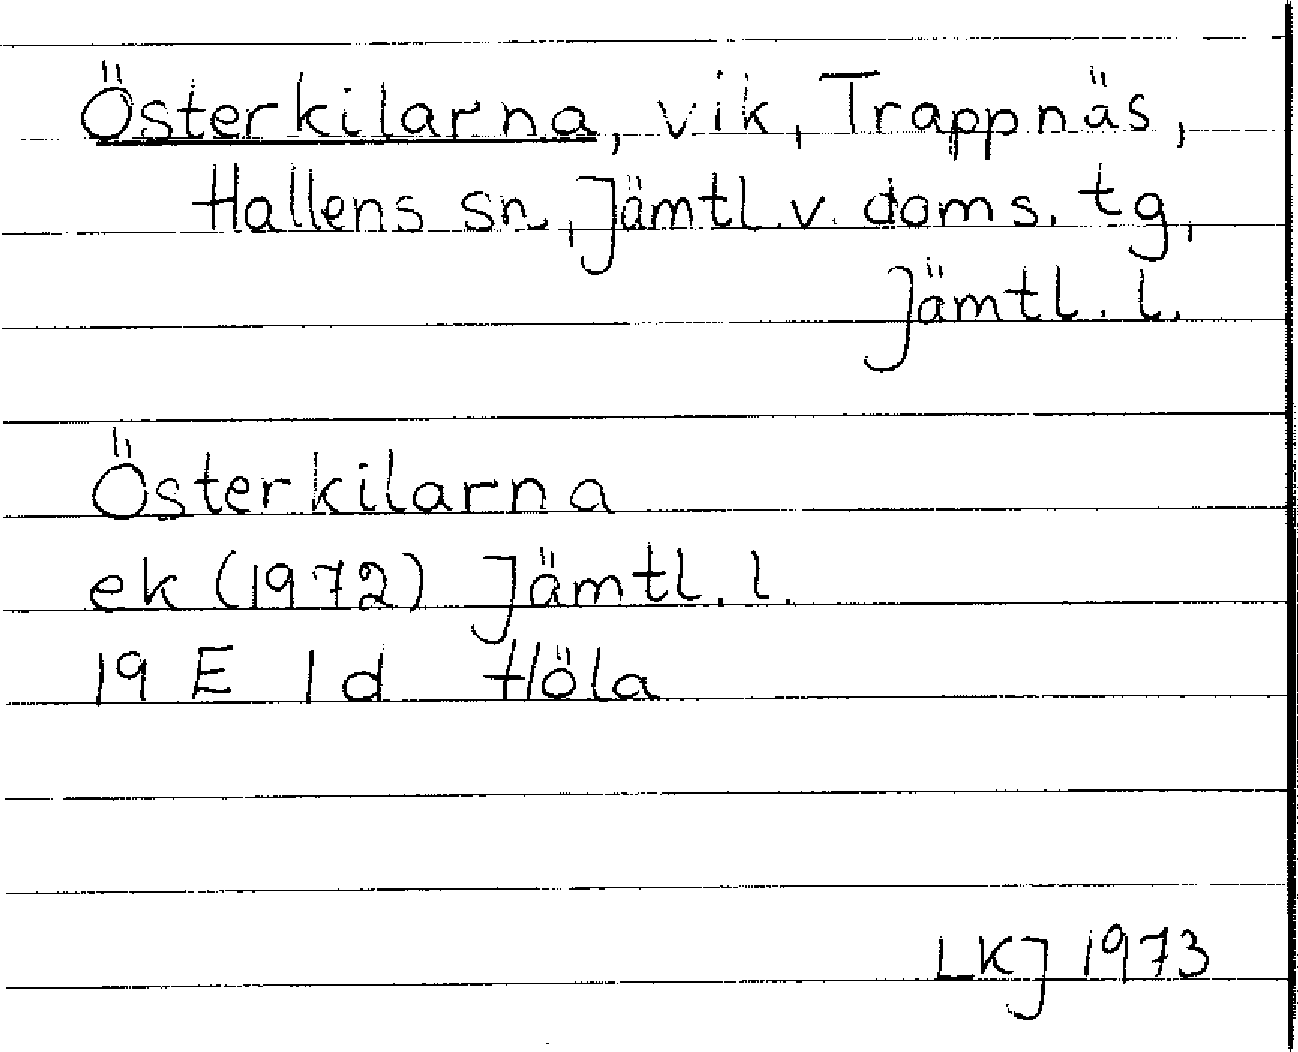 Österkilarna, vik, Trappnäs,
Hallens sn, Jämtl. v. doms. tg,
Jämtl. l.
Österkilarna
ek (1972) Jämtl. l.
19 E 1 d Höla
LKJ 1973